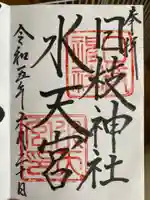 奉拝
日枝神社
水天宮
令和五年